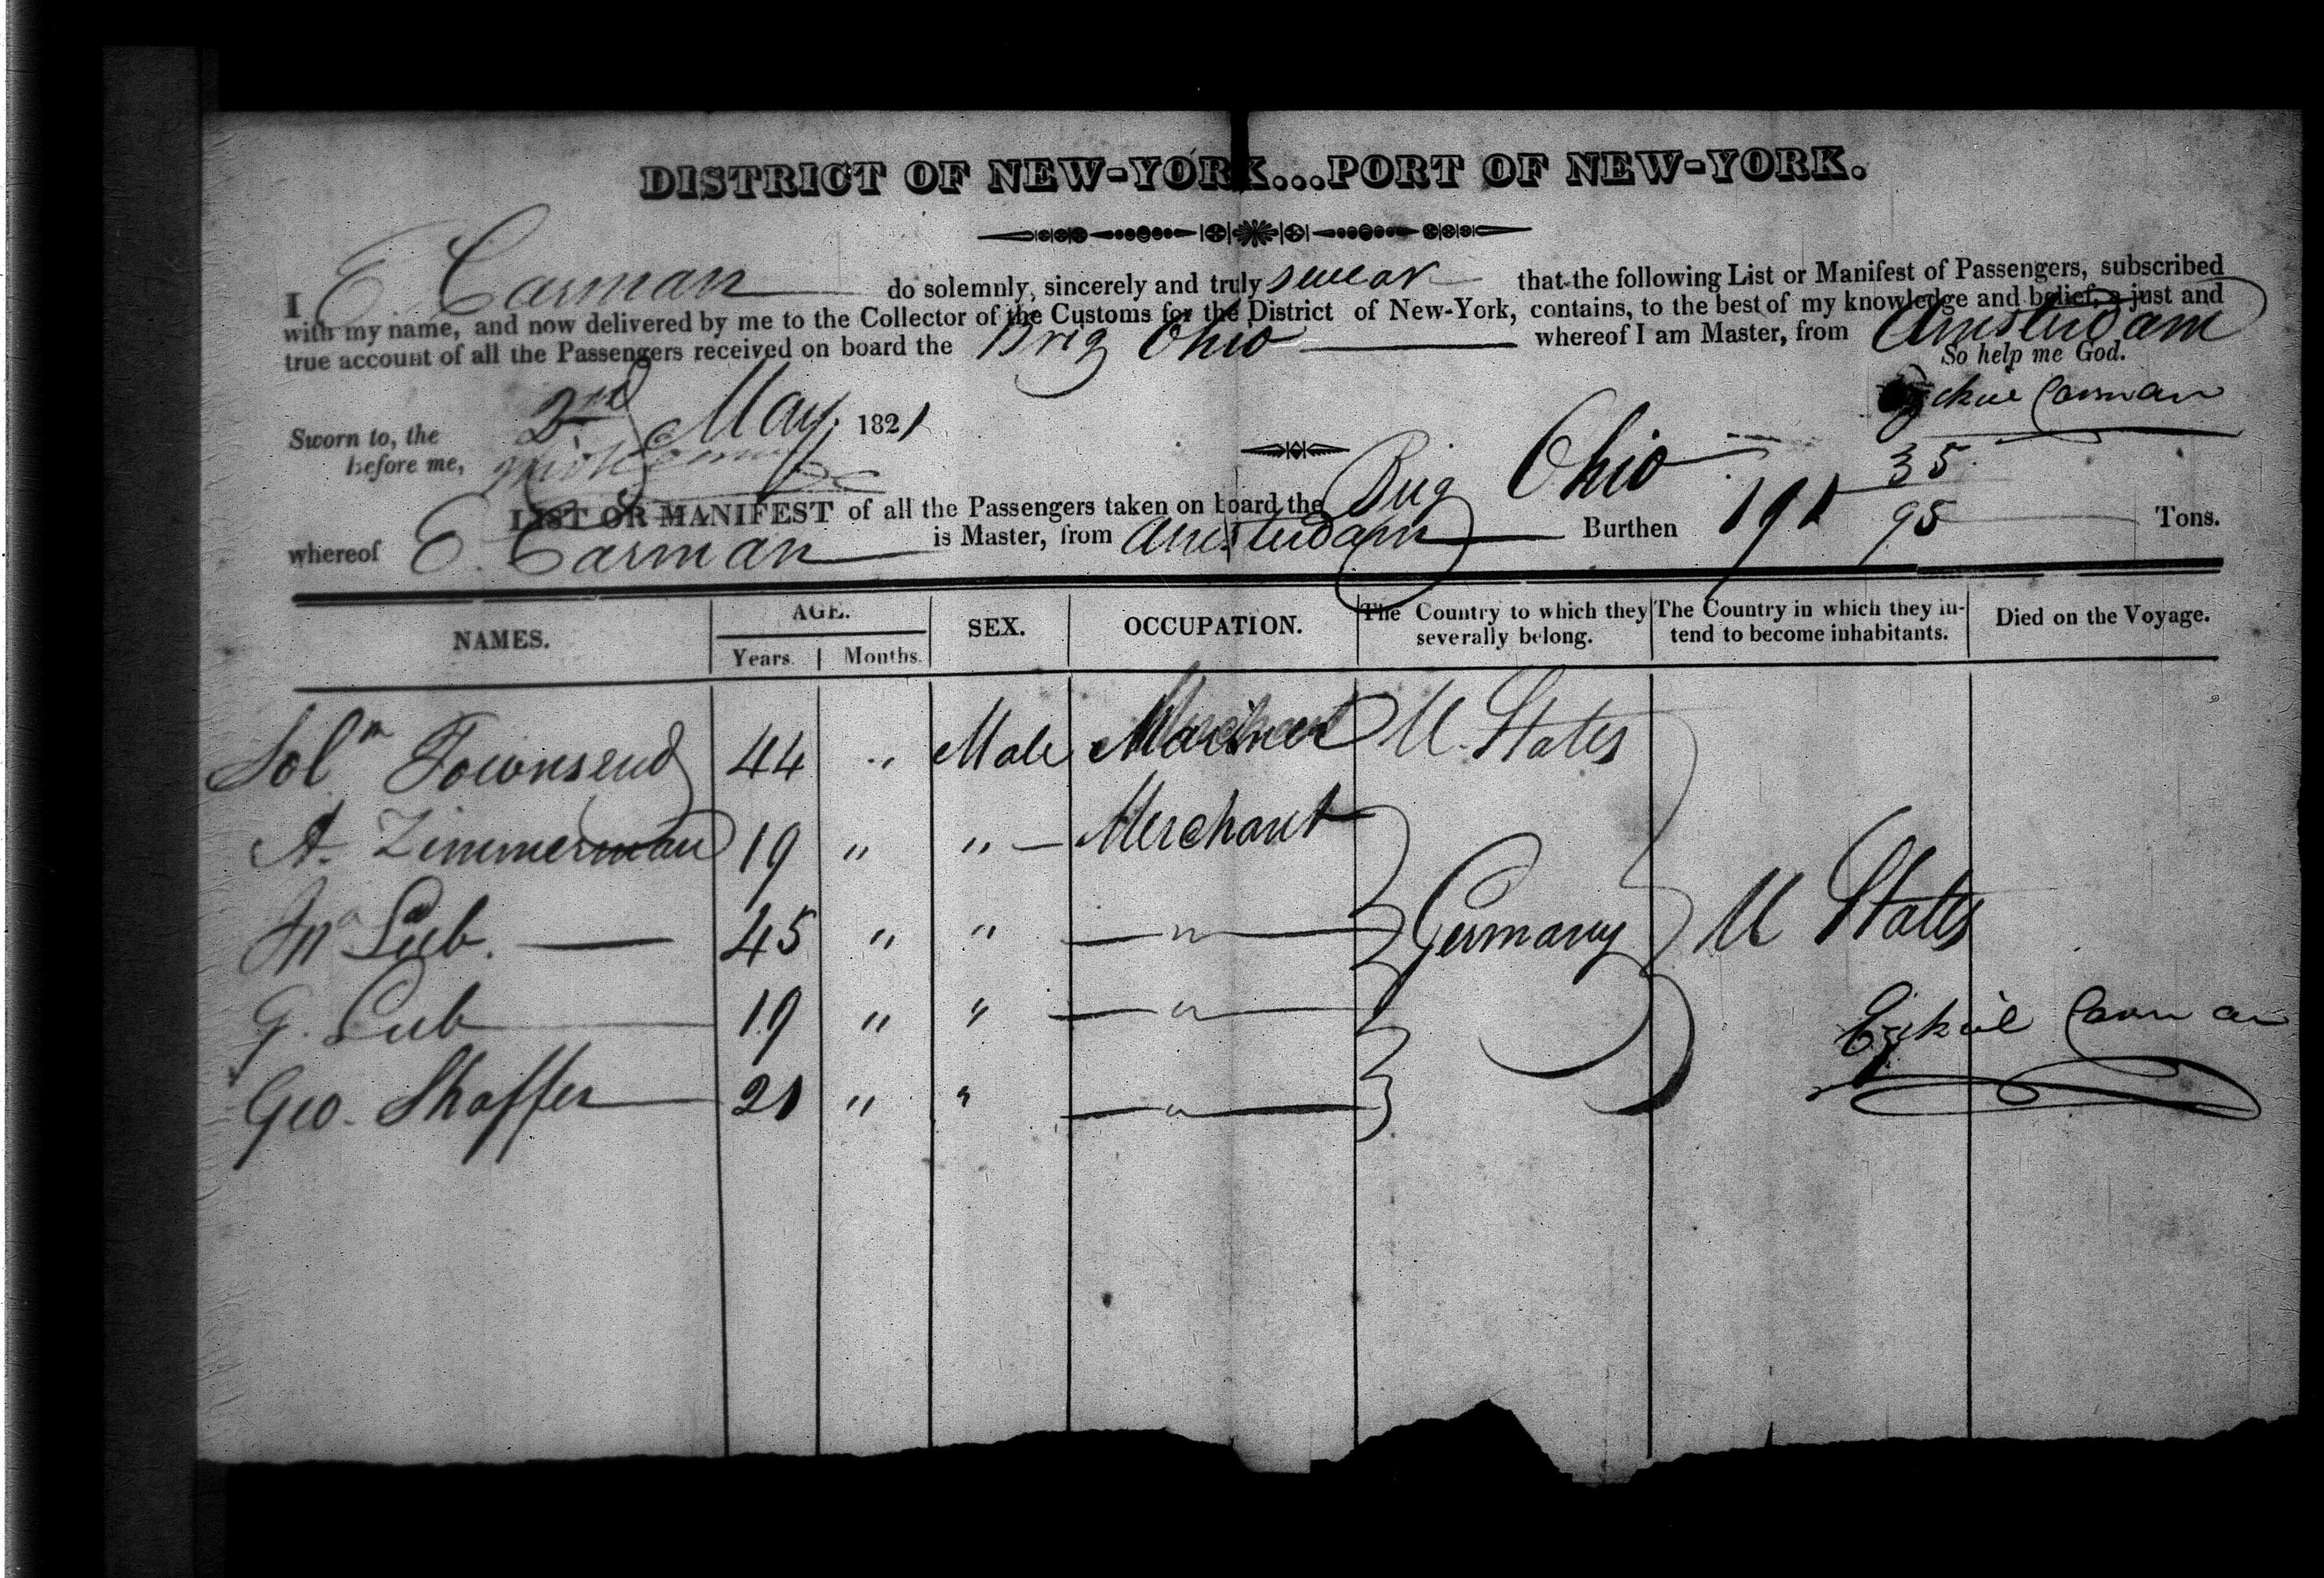 DISTRICT OF NEW-YORK...PORT OF NEW-YORK.
I E Carman do solemnly, sincerely and truly swear that the following List or Manifest of Passengers, subscribed
with my name, and now delivered by me to the Collector of the Customs for the District of New-York, contains, to the best of my knowledge and belief, a just and
true account of all the Passengers received on board the Brig Ohio whereof I am Master, from Amsterdam
So help me God.
Sworn to, the 2nd May 1821
Ezekiel Carman
before me,
LIST OR MANIFEST of all the Passengers taken on board the Brig Ohio
whereof E. Carman is Master, from Amsterdam Burthen 191 35/95 Tons.
NAMES. AGE. SEX. OCCUPATION. The Country to which they severally belong. The Country in which they intend to become inhabitants. Died on the Voyage.
Years. Months.
Solm Townsend 44 " Male U. States
A. Zimmerman 19 " " Merchant
Lieb. 45 " " " Germany U States
G. Lieb 19 " " "
Geo. Shaffer 21 " " "
Ezekiel Carman